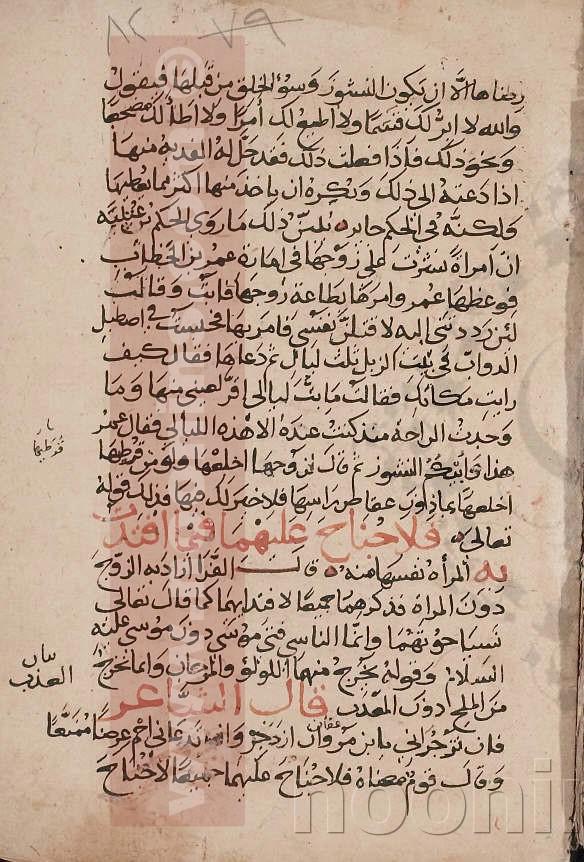 ٨٢ ٧٩
رضاها الا ان يكون النشوز وسوء الخلق من قبلها فتقول
والله لا ابر لك قسما ولا اطيع لك امرا ولا اطأ لك مضجعا
ونحو ذلك فاذا فعلت ذلك فقد حل له الفدية منها
اذا دعته الى ذلك ويكره ان ياخذ منها اكثر مما يعطيها
ولكنه في الحكم جايز يدل ذلك ما روى الحكم بن عتيبة
ان امراة نشزت على زوجها في امارة عمر بن الخطاب
فوعظها عمر وامرها بطاعة زوجها فابت وقالت
لئن رددتني اليه لاقتلن نفسي فامر بها فحبست في اصطبل
الدواب في بيت الزبل ثلث ليال ثم دعاها فقال كيف
رايت مكانك فقالت ما بت ليالي اقر لعيني منها وما
وجدت الراحة منذ كنت عنده الا هذه الليالي فقال عمر
هذا وابيكم النشوز ثم قال لزوجها اخلعها ولو من قرطها
اخلعها بما دون عقاص راسها فلا خير لك فيها فذلك قوله
تعالى فلا جناح عليهما فيما افتدت
به المراة نفسها منه قال الفرا اراد به الزوج
دون المراة فذكرهما جميعا لاقترانهما كما قال تعالى
نسيا حوتهما وانما الناسي فتى موسى دون موسى عليه
السلام وقوله يخرج منهما اللولو والمرجان وانما يخرج
من الملح دون العذب قال الشاعر
فان تزجراني يا ابن عفان انزجر وان تدعاني احم عرضا ممنعا
وقال قوم معناه فلا جناح عليهما جميعا لا جناح
قرطها
بيان
العذب